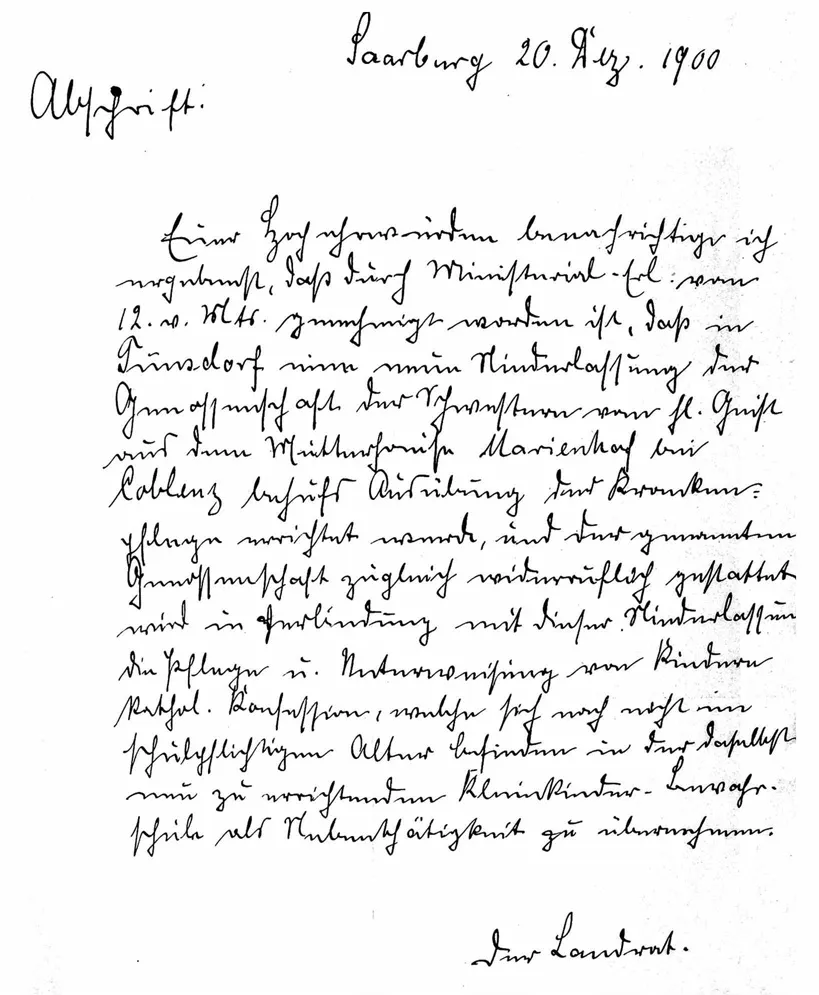 Saarburg 20. Dez. 1900
Abschrift.
Euer Hochehrwürden benachrichtige ich
ergebenst, daß durch Ministerial-Erl: vom
12. v. Mts. genehmigt worden ist, daß in
Tünsdorf eine neue Niederlassung der
Genossenschaft der Schwestern vom hl. Geist
aus dem Mutterhause Marienhof bei
Coblenz behufs Ausübung der Kranken-
pflege errichtet werde, und der genannten
Genossenschaft zugleich widerruflich gestattet
wird in Verbindung mit dieser Niederlassung
die Pflege u. Unterweisung von Kindern
kathol. Konfession, welche sich noch nicht im
schulpflichtigen Alter befinden in der daselbst
neu zu errichtenden Kleinkinder-Bewahr-
schule als Nebenthätigkeit zu übernehmen.
Der Landrat.